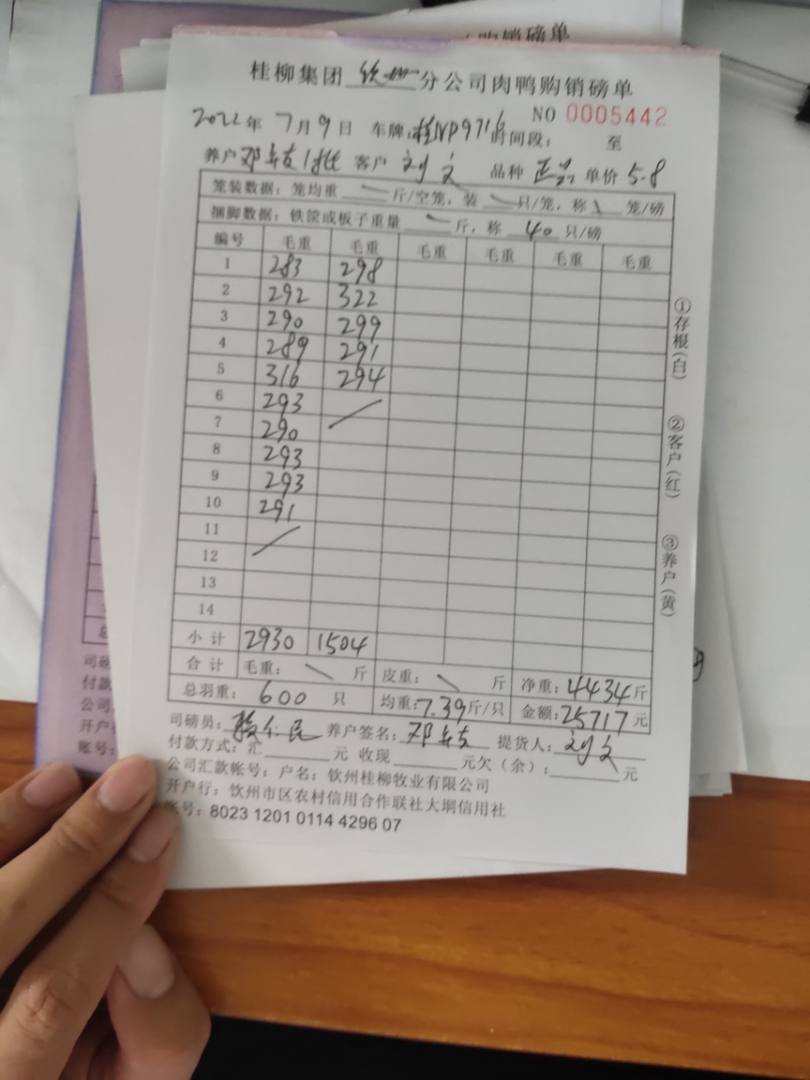 购销磅单
桂柳集团 钦州 分公司肉鸭购销磅单
NO 0005442
2022年 7月9日 车牌: 时间段: 至
养户 客户 刘文 品种 单价 5.8
笼装数据: 笼均重 斤/空笼, 装 只/笼, 称 笼/磅
捆脚数据: 铁筐或板子重量 斤, 称 40 只/磅
编号 毛重 毛重 毛重 毛重 毛重 毛重
1 283 298
2 292 322
3 290 299
4 289 291
5 316 294
6 293
7 290
8 293
9 293
10 291
11
12
13
14
小计 2930 1504
合计 毛重: 斤 皮重: 斤 净重: 4434斤
总羽重: 600 只 均重: 7.39斤/只 金额: 25717元
司磅员: 养户签名: 提货人: 刘文
付款方式: 汇 元 收现 元欠(余): 元
公司汇款帐号: 户名: 钦州桂柳牧业有限公司
开户行: 钦州市区农村信用合作联社大垌信用社
账号: 8023 1201 0114 4296 07
①存根(白)
②客户(红)
③养户(黄)